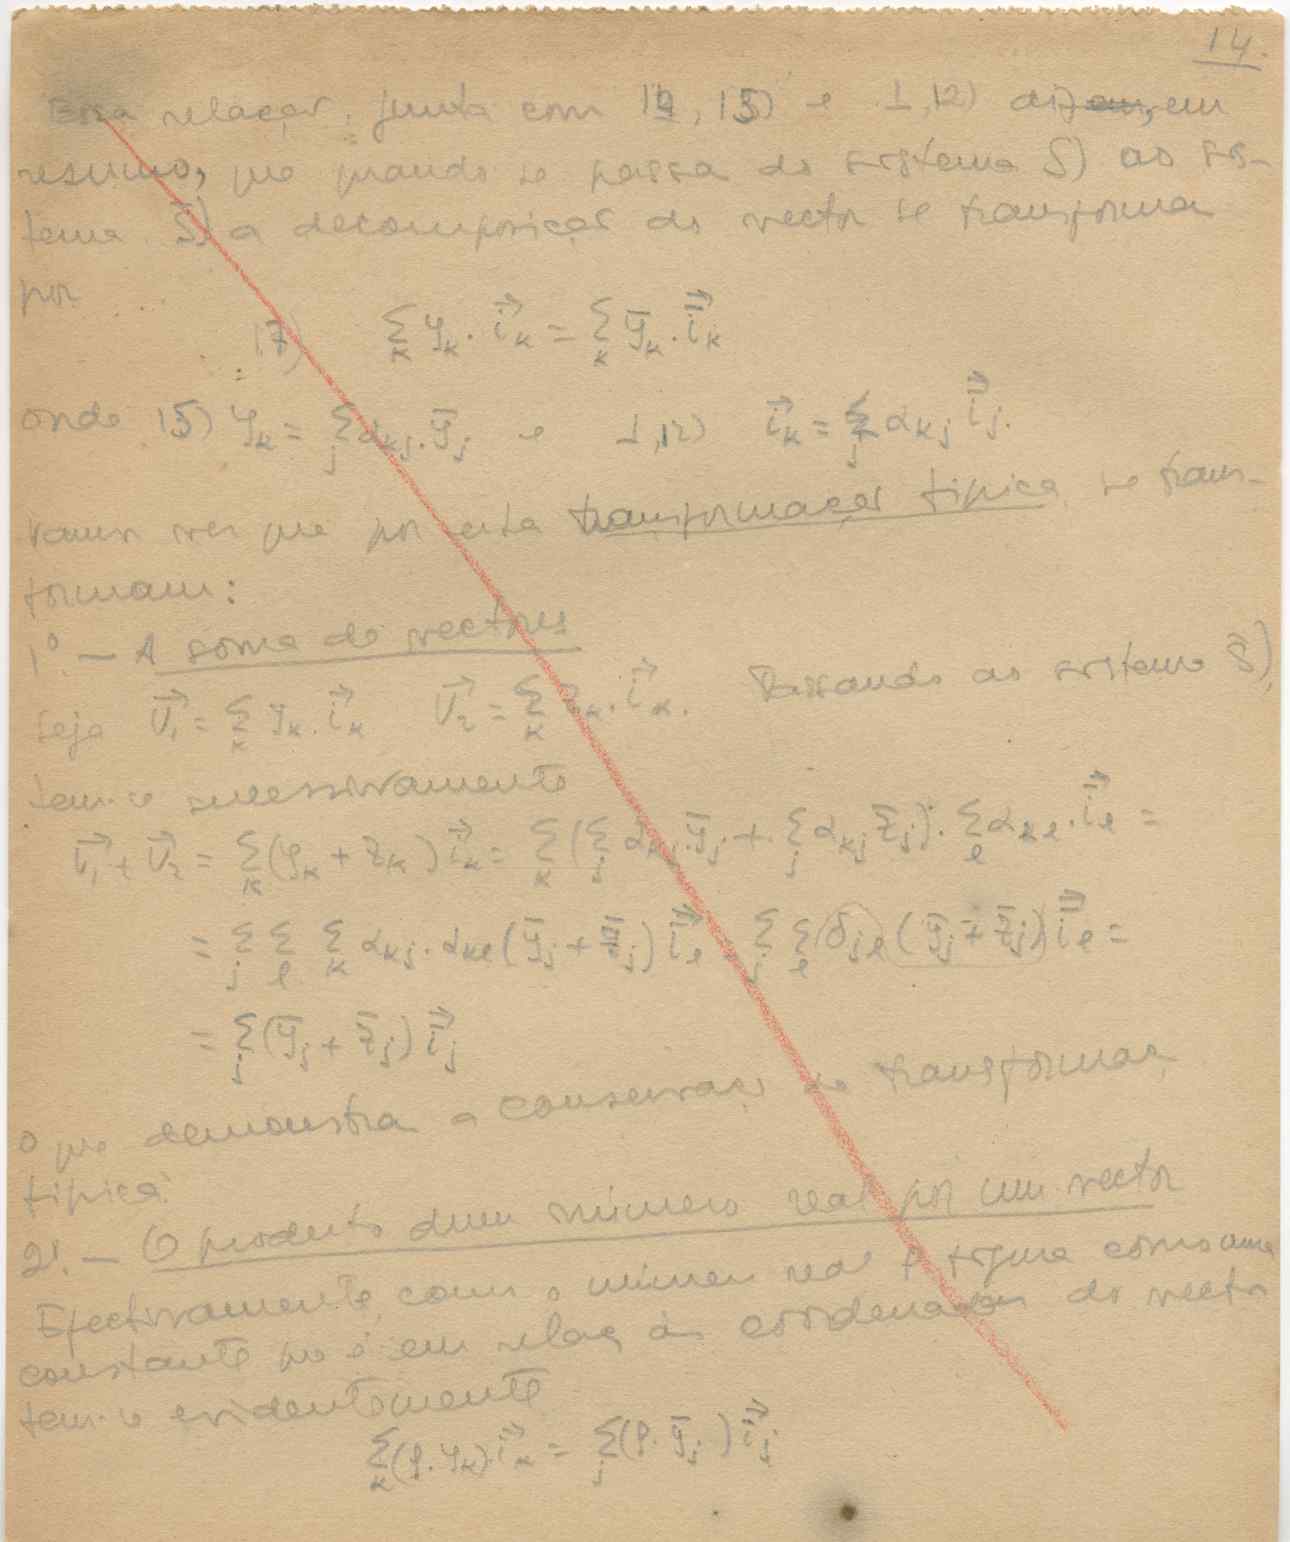 14.
Essa relação, junta com 14, 15) e 1,12) diz, em
resumo, que quando se passa do sistema S) ao sis-
tema S̄) a decomposição do vector se transforma
por
17) Σ_k y_k . i⃗_k = Σ_k ȳ_k . i̅⃗_k
onde 15) y_k = Σ_j α_kj . ȳ_j e 1,12) i⃗_k = Σ_j α_kj i̅⃗_j.
Vamos ver que por esta transformação típica se trans-
formam:
1º. — A soma de vectores
Seja V⃗_1 = Σ_k y_k . i⃗_k V⃗_2 = Σ_k z_k . i⃗_k. Passando ao sistema S̄),
tem-se sucessivamente
V⃗_1 + V⃗_2 = Σ_k (y_k + z_k) i⃗_k = Σ_k (Σ_j α_kj . ȳ_j + Σ_j α_kj z̄_j) . Σ_l α_kl . i̅⃗_l =
= Σ_j Σ_l Σ_k α_kj . α_kl (ȳ_j + z̄_j) i̅⃗_l = Σ_j Σ_l δ_jl (ȳ_j + z̄_j) i̅⃗_l =
= Σ_j (ȳ_j + z̄_j) i̅⃗_j
o que demonstra a conservação da transformação
típica.
2º. — O produto dum número real por um vector
Efectivamente, como o número real ρ figura como uma
constante que é em relação às coordenadas do vector
tem-se evidentemente
Σ_k (ρ . y_k) . i⃗_k = Σ_j (ρ . ȳ_j) i̅⃗_j